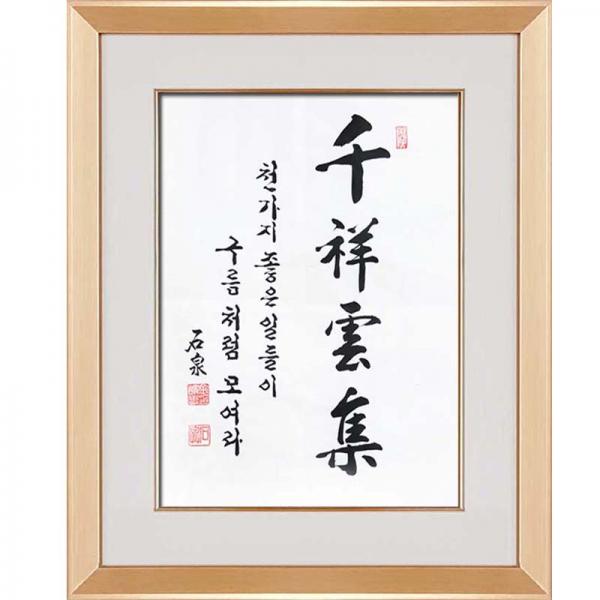 千祥雲集
천가지 좋은 일들이
구름처럼 모여라
石泉